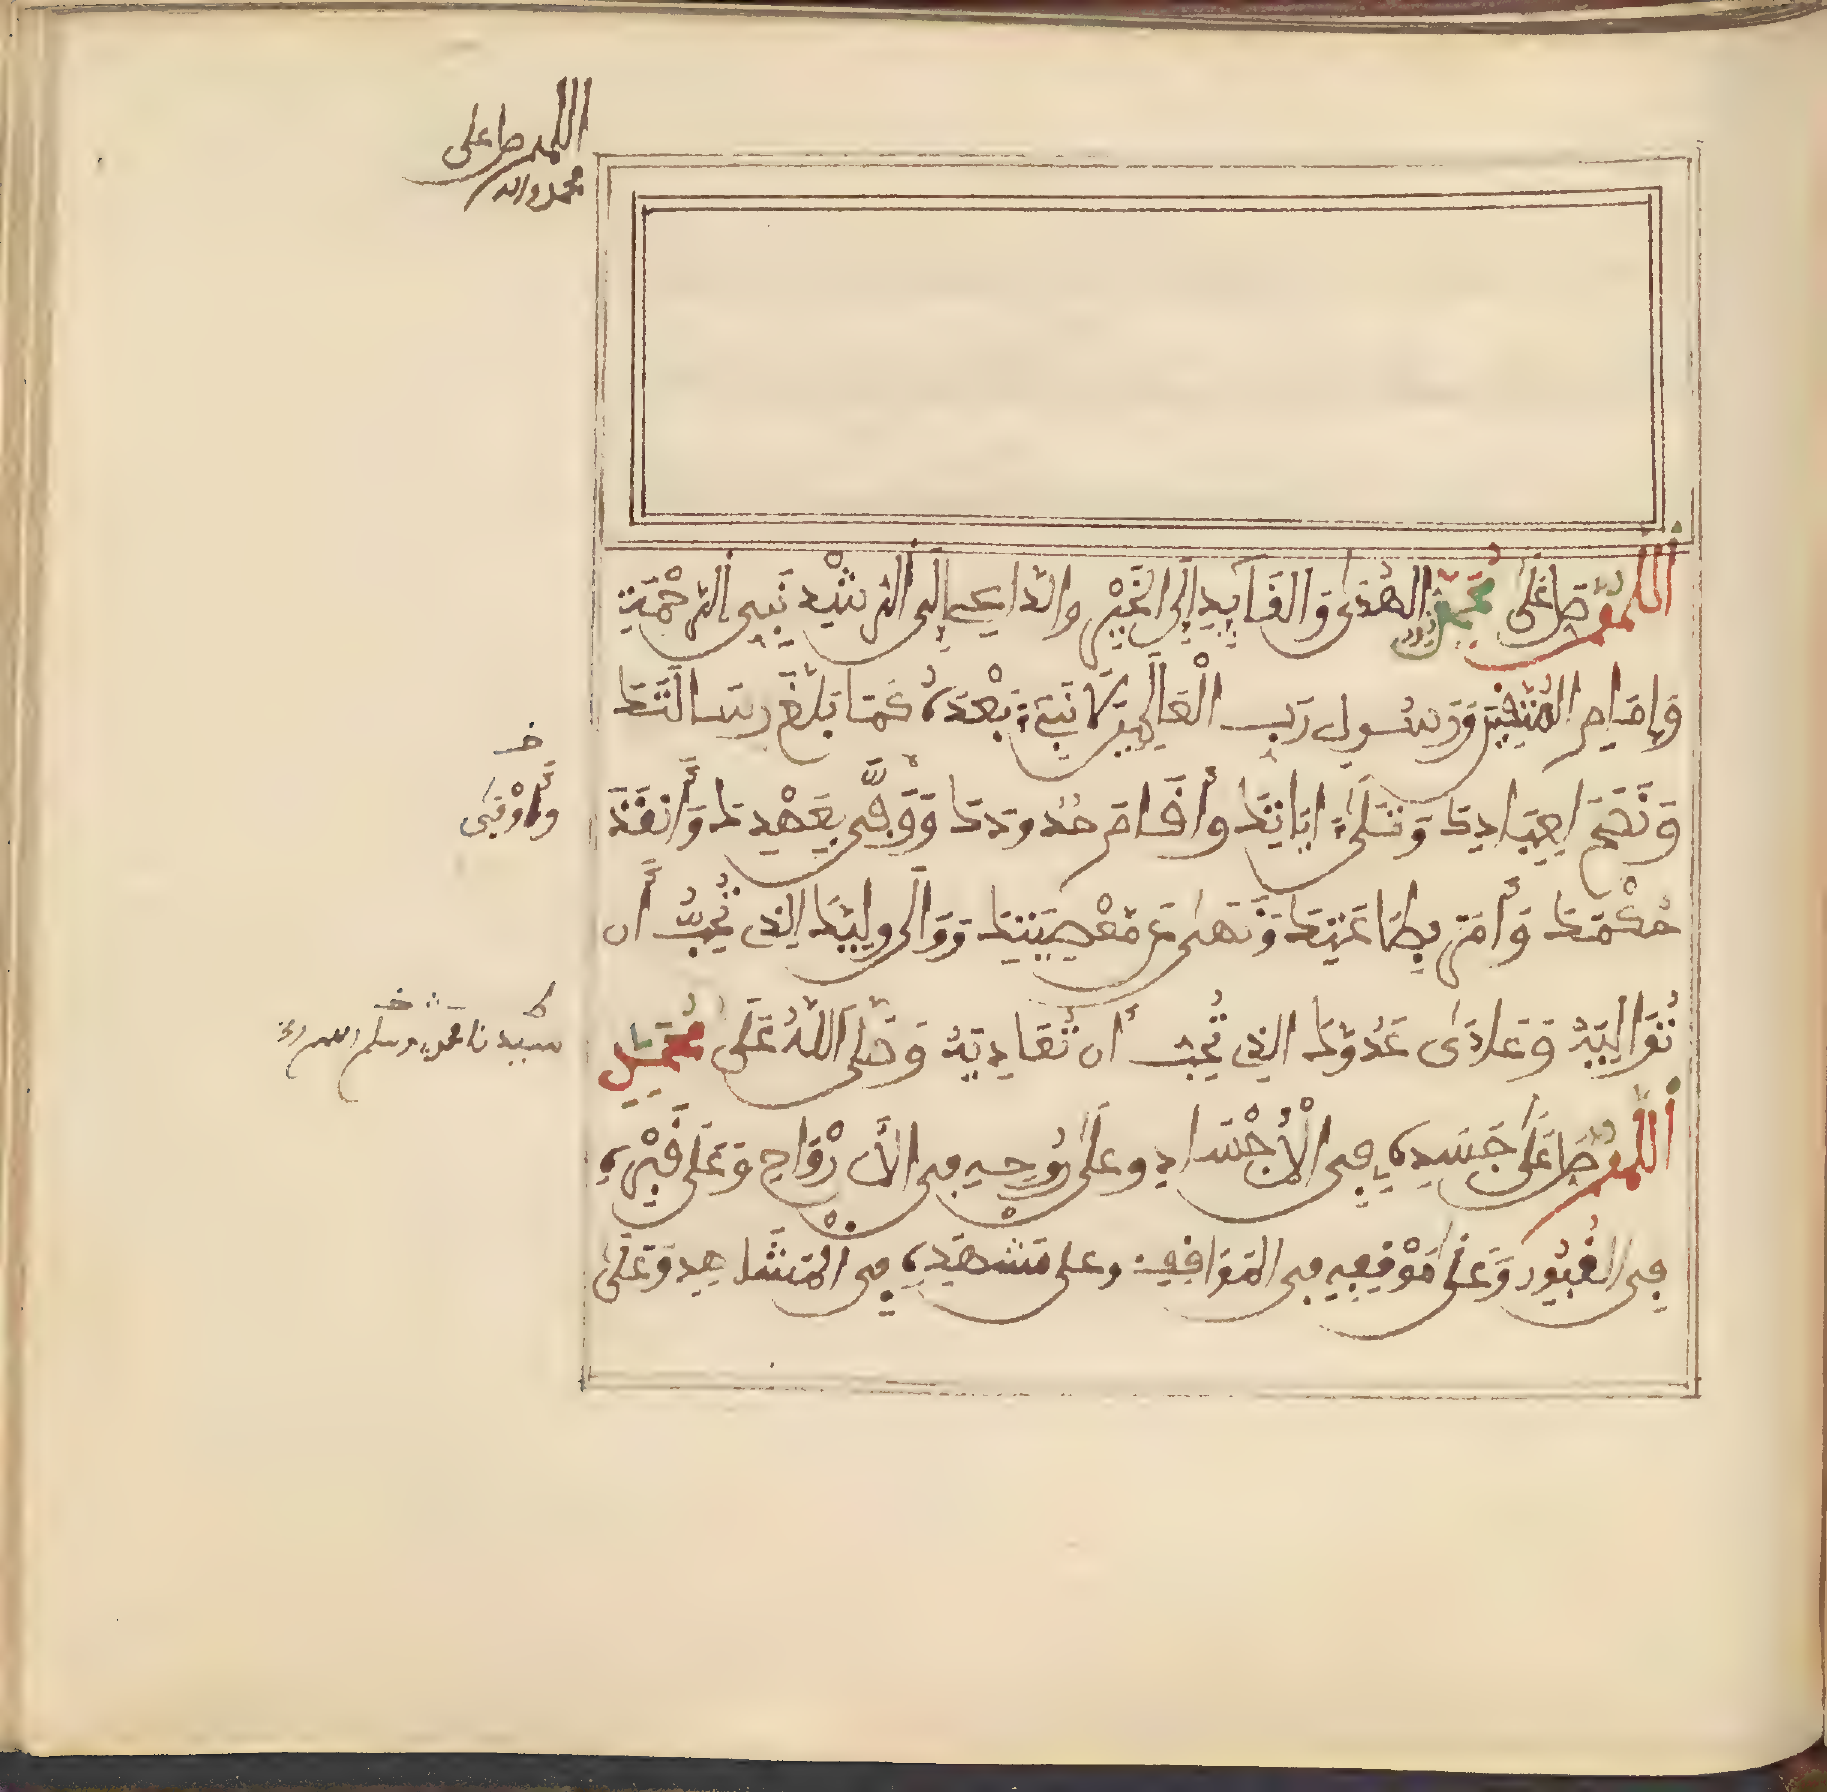 اللهم صل على
محمد واله
اللَّهُمَّ صَلِّ عَلَى مُحَمَّدٍ نُورِ الْهُدَى وَالْقَائِدِ إِلَى الْخَيْرِ وَالدَّاعِي إِلَى الرُّشْدِ نَبِيِّ الرَّحْمَةِ
وَإِمَامِ الْمُتَّقِينَ وَرَسُولِ رَبِّ الْعَالَمِينَ لَا نَبِيَّ بَعْدَهُ كَمَا بَلَّغَ رِسَالَتَكَ
وَنَصَحَ لِعِبَادِكَ وَتَلَى ءَايَاتِكَ وَأَقَامَ حُدُودَكَ وَوَفَّى بِعَهْدِكَ وَأَنْفَذَ
خ
وَأَوْفَى
حُكْمَكَ وَأَمَرَ بِطَاعَتِكَ وَنَهَى عَنْ مَعْصِيَتِكَ وَوَالَى وَلِيَّكَ الَّذِي تُحِبُّ أَنْ
تُوَالِيَهُ وَعَادَى عَدُوَّكَ الَّذِي تُحِبُّ أَنْ تُعَادِيَهُ وَصَلَّى اللَّهُ عَلَى مُحَمَّدٍ
سيدنا محمد وسلم
اللَّهُمَّ صَلِّ عَلَى جَسَدِهِ فِي الْأَجْسَادِ وَعَلَى رُوحِهِ فِي الْأَرْوَاحِ وَعَلَى قَبْرِهِ
فِي الْقُبُورِ وَعَلَى مَوْقِفِهِ فِي الْمَوَاقِفِ وَعَلَى مَشْهَدِهِ فِي الْمَشَاهِدِ وَعَلَى